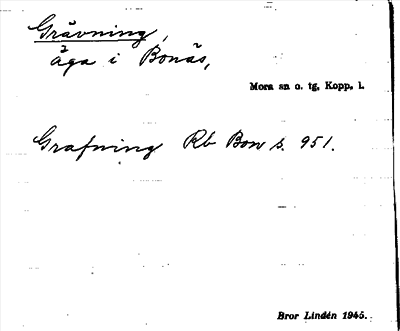 Grävning,
äga i Bonäs,
Mora sn o. tg, Kopp. l.
Grafning Rb Bon s. 951.
Bror Lindén 1945.